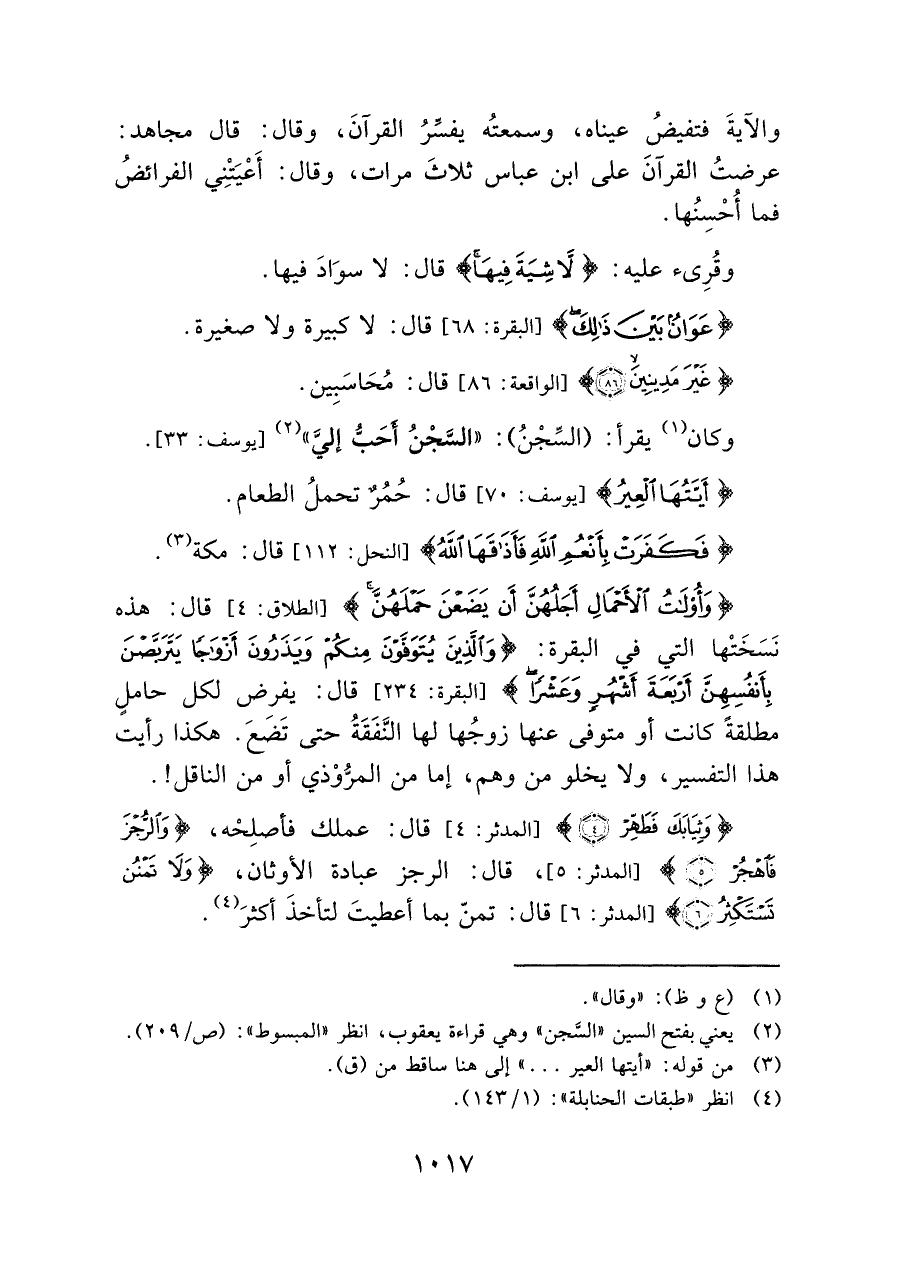 والآيةَ فتفيضُ عيناه، وسمعتُه يفسِّرُ القرآنَ، وقال: قال مجاهد:
عرضتُ القرآنَ على ابن عباس ثلاثَ مرات، وقال: أَعْيَتْنِي الفرائضُ
فما أُحْسِنُها.
وقُرِىء عليه: ﴿لَّا شِيَةَ فِيهَاۚ﴾ قال: لا سوَادَ فيها.
﴿عَوَانٌۢ بَيْنَ ذَٰلِكَۖ﴾ [البقرة: ٦٨] قال: لا كبيرة ولا صغيرة.
﴿غَيْرَ مَدِينِينَۙ ٨٦﴾ [الواقعة: ٨٦] قال: مُحَاسَبِين.
وكان(١) يقرأ: (السِّجْنُ): «السَّجْنُ أَحَبُّ إليَّ»(٢) [يوسف: ٣٣].
﴿أَيَّتُهَا ٱلْعِيرُ﴾ [يوسف: ٧٠] قال: حُمُرٌ تحملُ الطعام.
﴿فَكَفَرَتْ بِأَنْعُمِ ٱللَّهِ فَأَذَٰقَهَا ٱللَّهُ﴾ [النحل: ١١٢] قال: مكة(٣).
﴿وَأُوْلَٰتُ ٱلْأَحْمَالِ أَجَلُهُنَّ أَن يَضَعْنَ حَمْلَهُنَّۚ﴾ [الطلاق: ٤] قال: هذه
نَسَخَتْها التي في البقرة: ﴿وَٱلَّذِينَ يُتَوَفَّوْنَ مِنكُمْ وَيَذَرُونَ أَزْوَٰجًا يَتَرَبَّصْنَ
بِأَنفُسِهِنَّ أَرْبَعَةَ أَشْهُرٍ وَعَشْرًاۖ﴾ [البقرة: ٢٣٤] قال: يفرض لكل حاملٍ
مطلقةً كانت أو متوفى عنها زوجُها لها النَّفَقَةُ حتى تَضَعَ. هكذا رأيت
هذا التفسير، ولا يخلو من وهم، إما من المرُّوْذي أو من الناقل!.
﴿وَثِيَابَكَ فَطَهِّرْ ٤﴾ [المدثر: ٤] قال: عملك فأصلِحْه، ﴿وَٱلرُّجْزَ
فَٱهْجُرْ ٥﴾ [المدثر: ٥]، قال: الرجز عبادة الأوثان، ﴿وَلَا تَمْنُن
تَسْتَكْثِرُ ٦﴾ [المدثر: ٦] قال: تمنّ بما أعطيتَ لتأخذَ أكثرَ(٤).
(١) (ع و ظ): «وقال».
(٢) يعني بفتح السين «السَّجن» وهي قراءة يعقوب، انظر «المبسوط»: (ص/٢٠٩).
(٣) من قوله: «أيتها العير ...» إلى هنا ساقط من (ق).
(٤) انظر «طبقات الحنابلة»: (١/١٤٣).
١٠١٧